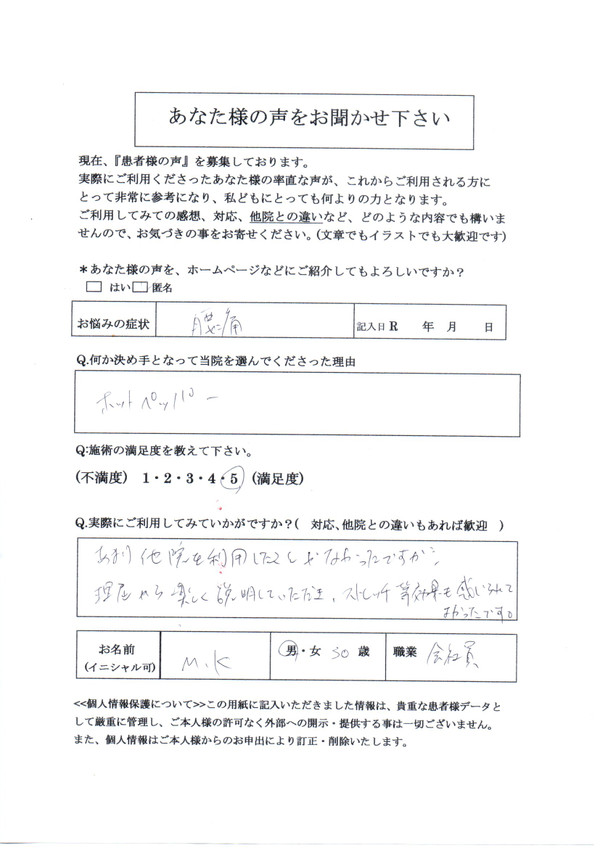 あなた様の声をお聞かせ下さい
現在、『患者様の声』を募集しております。
実際にご利用くださったあなた様の率直な声が、これからご利用される方に
とって非常に参考になり、私どもにとっても何よりの力となります。
ご利用してみての感想、対応、他院との違いなど、どのような内容でも構いま
せんので、お気づきの事をお寄せください。(文章でもイラストでも大歓迎です)
*あなた様の声を、ホームページなどにご紹介してもよろしいですか？
□ はい□匿名
お悩みの症状 腰痛 記入日 R 年 月 日
Q.何か決め手となって当院を選んでくださった理由
ホットペッパー
Q:施術の満足度を教えて下さい。
(不満度) 1・2・3・4・5 (満足度)
Q.実際にご利用してみていかがですか？( 対応、他院との違いもあれば歓迎 )
あまり他院を利用したことがなかったですが、
理屈から楽しく説明していただき、ストレッチ等効果も感じられて
よかったです。
お名前 M.K 男・女 30 歳 職業 会社員
(イニシャル可)
<<個人情報保護について>>この用紙に記入いただきました情報は、貴重な患者様データと
して厳重に管理し、ご本人様の許可なく外部への開示・提供する事は一切ございません。
また、個人情報はご本人様からのお申出により訂正・削除いたします。